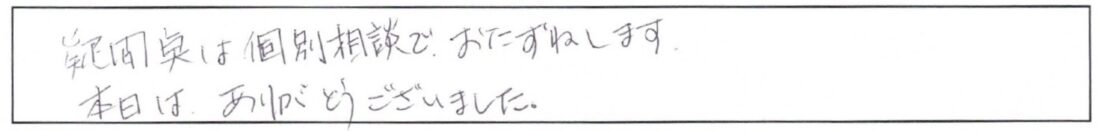 疑問点は個別相談で、おたずねします。
本日は、ありがとうございました。